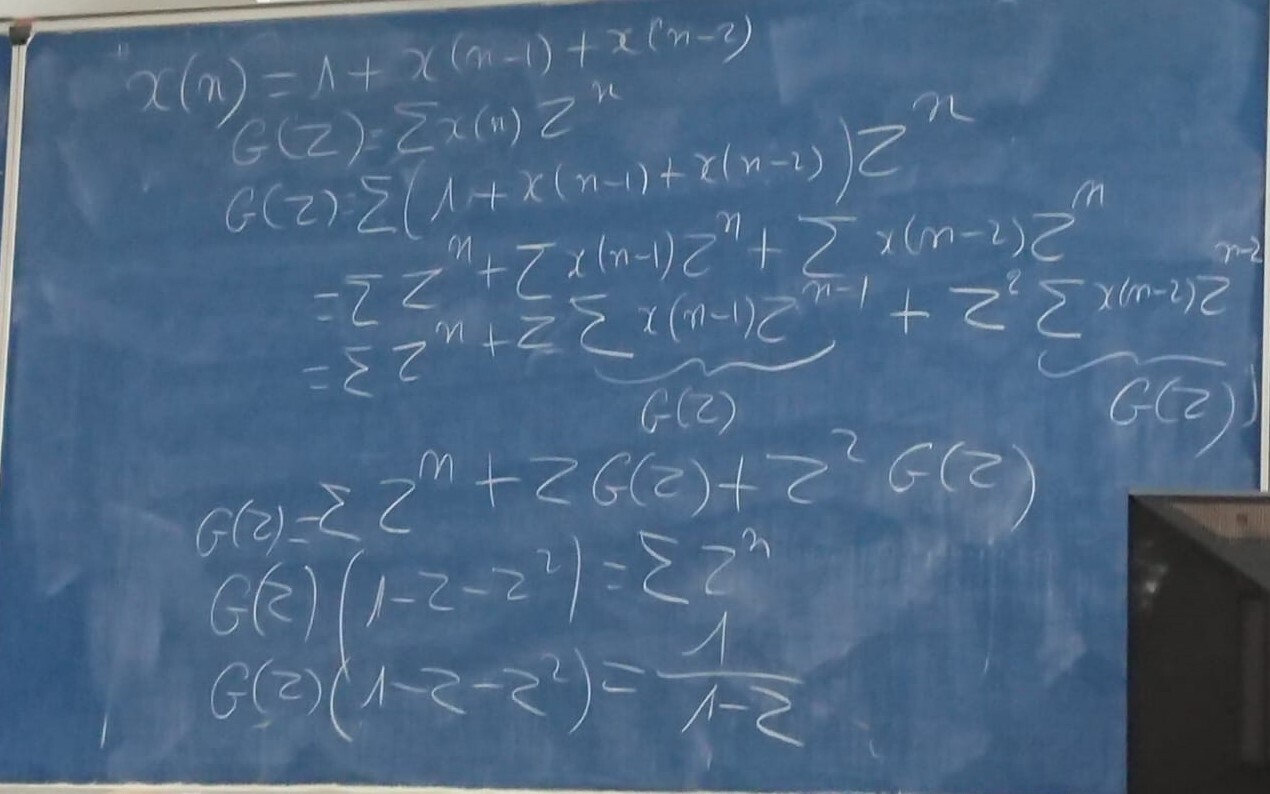 x(n) = 1 + x(n-1) + x(n-2)
G(z) = Σ x(n) z^n
G(z) = Σ (1 + x(n-1) + x(n-2)) z^n
= Σ z^n + Σ x(n-1) z^n + Σ x(n-2) z^n
= Σ z^n + z Σ x(n-1) z^{n-1} + z² Σ x(n-2) z^{n-2}
G(z) G(z)
G(z) = Σ z^n + z G(z) + z² G(z)
G(z) (1 - z - z²) = Σ z^n
G(z) (1 - z - z²) = 1/(1-z)